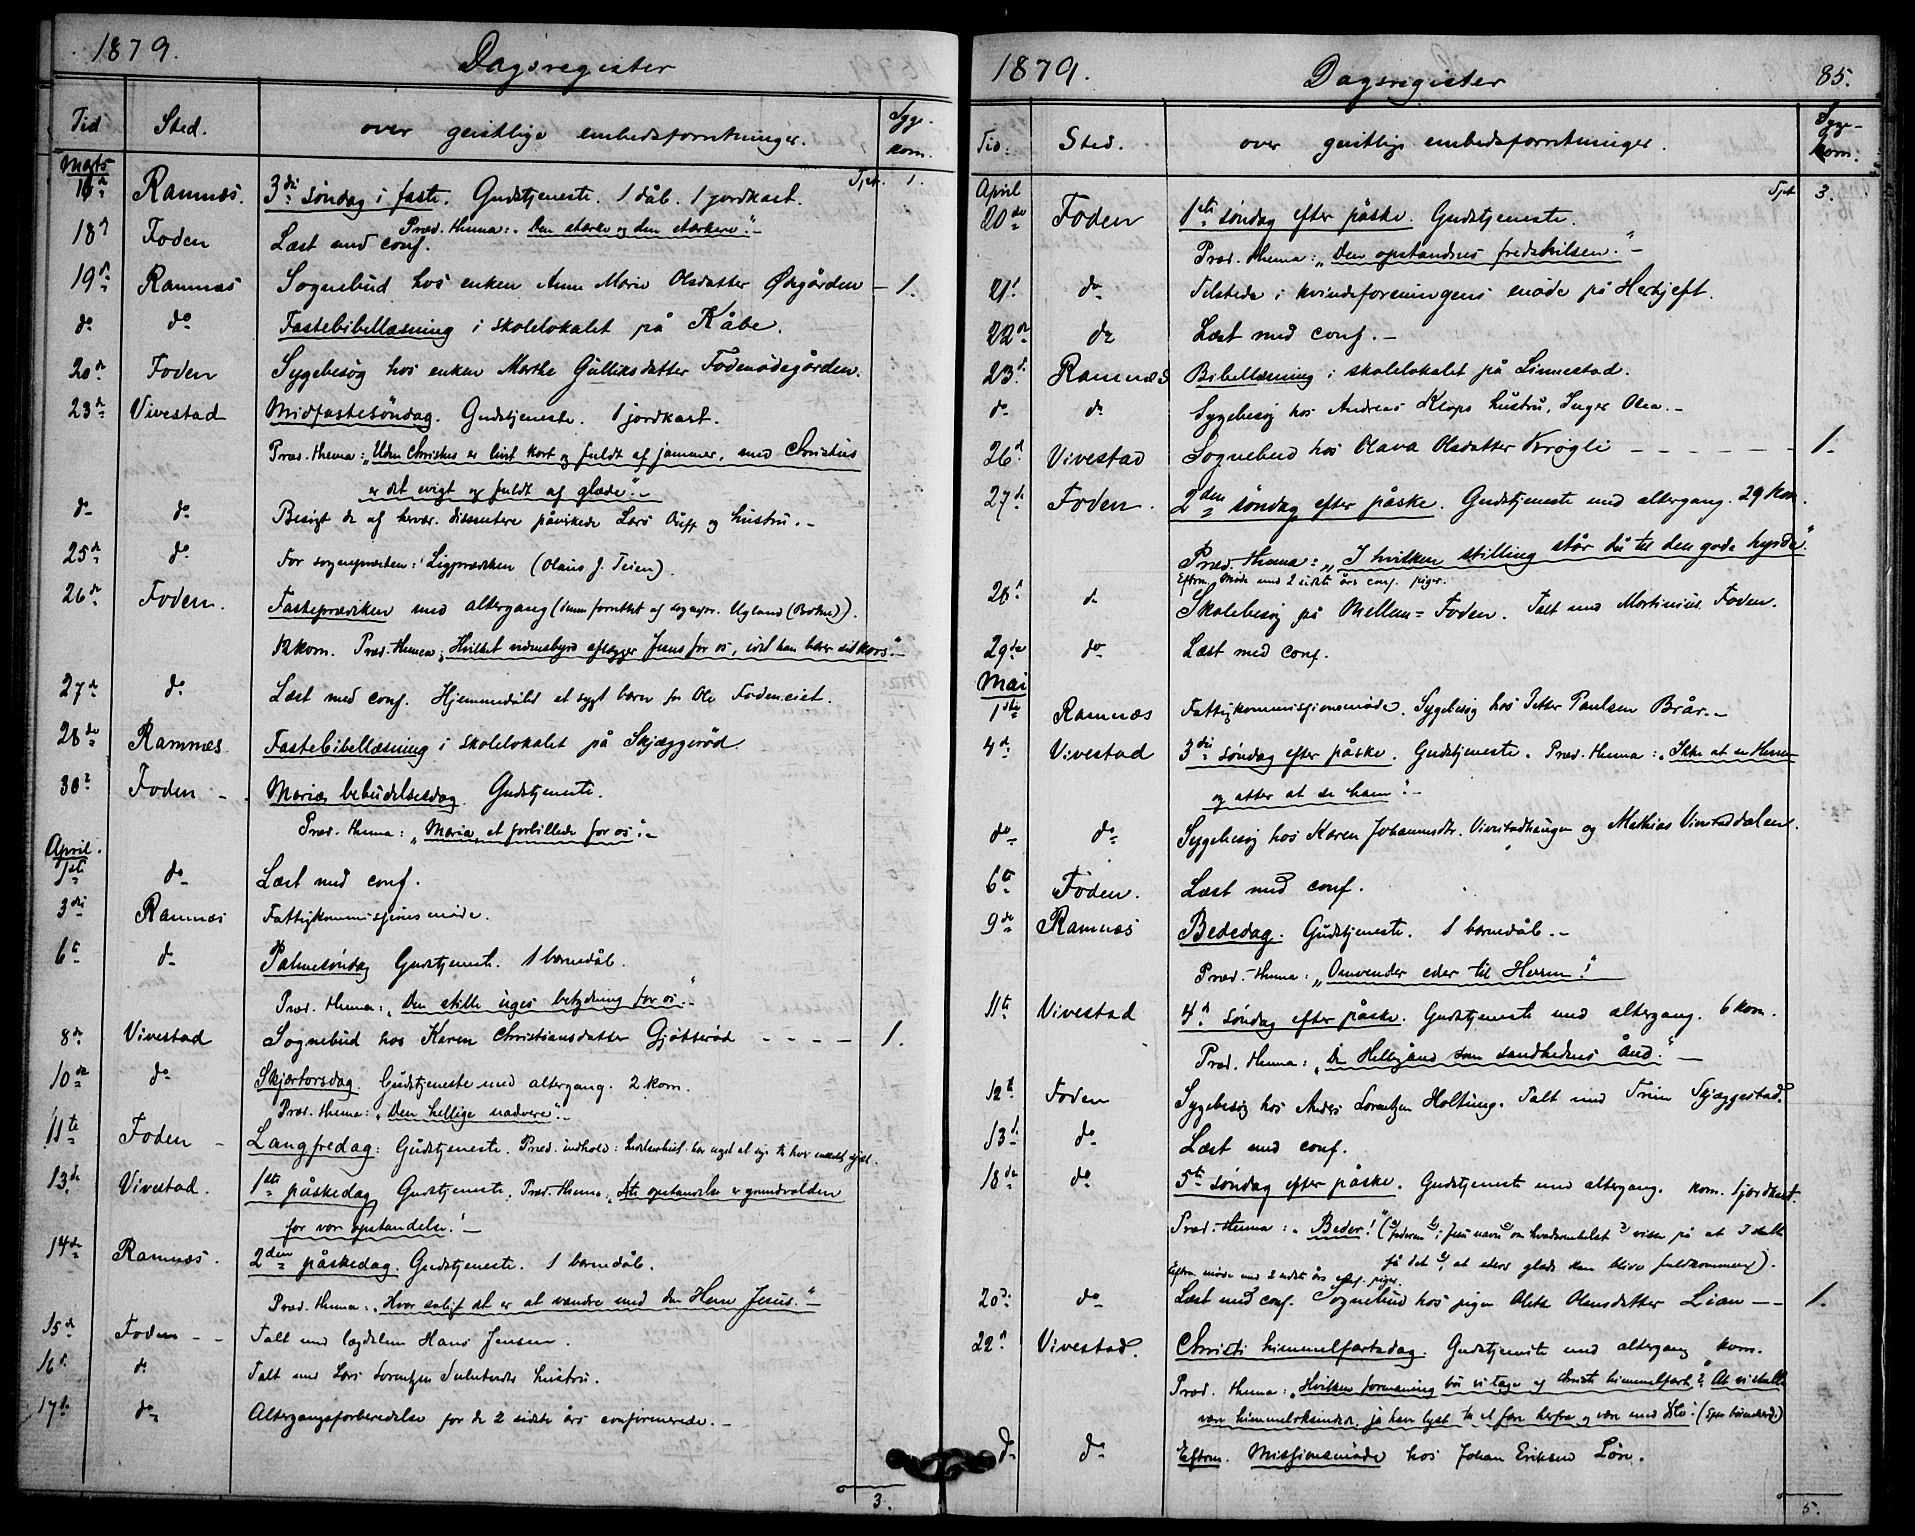 1879.
Dagsregister
Tid
Sted.
over geistlige embedsforretninger.
Syge-
kom.
Marts
16de Ramnæs. 3die søndag i faste. Gudstjeneste. 1 dåb. 1 jordkast. Tpt. 1.
Præd. thema: „Den stærke og den stærkere".-
18d Foden Læst med conf.
19de Ramnæs Sognebud hos enken Anne Marie Olsdatter Øhgården - 1.
do do Fastebibellæsning i skolelokalet på Kåbe.
20de Foden Sygebesøg hos enken Marthe Gulliksdatter Fodenødegården.
23de Vivestad Midfastesøndag. Gudstjeneste. 1 jordkast.
Præd. thema: „Uden Christus er livet kort og fuldt af jammer, med Christus
er det evigt og fuldt af glæde".-
do do Besøgt de af hervær. dissentere påvirkede Lars og hustru.-
25de do For sognepræsten: Ligprædiken (Olaus J. Teien).
26de Foden. Fasteprædiken med altergang (denne forrettet af sognepr. Ugland (Botne)).
12 kom. Præd. thema: „Hvilket vidnesbyrd aflægger Jesus for os, idet han bærer sit kors".-
27de do Læst med conf. Hjemmedøbt et sygt barn for Ole Fodeneiet.
28de Ramnæs. Fastebibellæsning i skolelokalet på Skjæggerød.
30te Foden - Mariæ bebudelsesdag. Gudstjeneste.
Præd. thema: „Maria et forbillede for os".-
April.
1ste do Læst med conf.
3die Ramnæs Fattigkommissionsmøde.
6te do Palmesøndag Gudstjeneste. 1 barnedåb.
Præd. thema: „Den stille uges betydning for os".-
8de Vivestad Sognebud hos Karen Christiansdatter Gjøtterød - - - - 1.
10de do Skjærtorsdag. Gudstjeneste med altergang. 2 kom.
Præd. thema: „Den hellige nadvere".-
11te Foden - Langfredag: Gudstjeneste. Præd. indhold: har noget at sige til hver enkelt sjæl.
13de Vivestad. 1ste påskedag Gudstjeneste. Præd. thema: „Xti opstandelse er grundvolden
for vor opstandelse."-
14de Ramnæs. 2den påskedag. Gudstjeneste. 1 barnedåb.
Præd. thema: „Hvor saligt det er at vandre med den Herre Jesus."-
15de Foden - - Talt med lægdslem Hans Jensen.
16d do Talt med Lars Lorentzen hustru.
17de do Altergangsforberedelse for de 2 sidste års confirmerede.-
3.
1879.
Dagsregister
85.
Tid.
Sted.
over geistlige embedsforretninger.
Syge-
kom.
April Tpt 3.
20de Foden 1ste søndag efter påske. Gudstjeneste.
Præd. thema: „Den opstandnes fredshilsen."-
21d do Tilstede i kvindeforeningens møde på Herkjeft.
22de do Læst med conf.-
23d. Ramnæs Bibellæsning i skolelokalet på Linnestad.
do do Sygebesøg hos Andreas Klops hustru, Inger Olea.-
26d Vivestad Sognebud hos Olava Olsdatter Krøgli - - - - - - 1.
27de Foden. 2den søndag efter påske. Gudstjeneste med altergang. 29 kom.
Præd. thema: „I hvilken stilling står du til den gode hyrde".
Efterm. møde med 2 sidste års conf. piger.
28d do Skolebesøg på Mellem-Foden. Talt med Martinius Foden.
29de do Læst med conf.
Mai
1ste Ramnæs Fattigkommissionsmøde. Sygebesøg hos Petter Paulsen Brår.-
4de Vivestad 3die søndag efter påske. Gudstjeneste. Præd. thema: „Ikke at se Herren
og atter at se ham".-
do do Sygebesøg hos Karen Johannesdtr. Vivestadhaugen og Mathias Vivestaddalen.
6te Foden. Læst med conf.
9de Ramnæs Bededag. Gudstjeneste. 1 barnedåb.-
Præd. thema: „Omvender eder til Herren!"
11te Vivestad 4de søndag efter påske. Gudstjeneste med altergang. 6 kom.
Præd. thema: „Den Helligånd som sandhedens Ånd."-
12te Foden Sygebesøg hos Anders Lorentzen Holtung. Talt med Trine Skjæggestad.
13d. do Læst med conf.
18de do 5te søndag efter påske. Gudstjeneste med altergang. kom. 1 jordkast.
Præd. thema: „Beder!" (Faderen i Jesu navn om hvadsomhelst visse på at I skulle
få det, at eders glæde kan blive fuldkommen).
Efterm. møde med 2 sidste års piger.
20de do Læst med conf. Sognebud hos pigen Olsdatter Lian - - 1.
22d Vivestad. Christi himmelfartsdag. Gudstjeneste med altergang kom.
Præd. thema: „Hvilken formaning bør vi tage af Christi himmelfart? At vi skulle
være himmelsksindede, ja have lyst til at fare herfra og være med Xto".
do do Efterm. Missionsmøde hos Johan Eriksen Løre.
5.